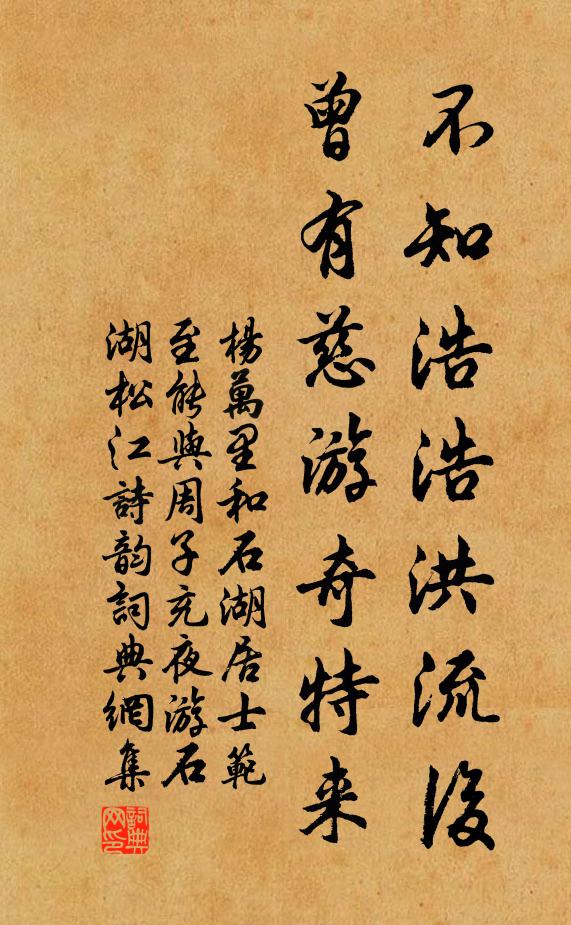 不知浩浩洪流後
曾有慈游奇特来
楊萬里和石湖居士範
至能與周子充夜游石
湖松江詩韵詞典網集
詞典网印